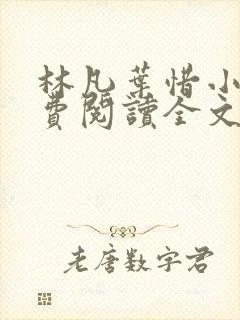 林凡葉惜小
費閱讀全文
老唐数字君